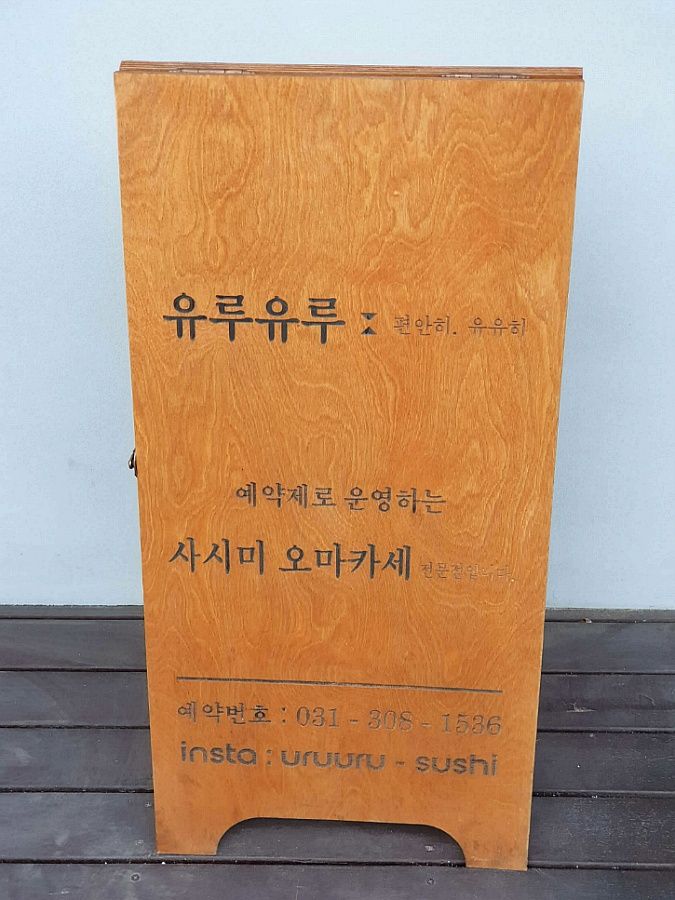 유루유루 : 편안히. 유유히
예약제로 운영하는
사시미 오마카세 전문점입니다.
예약번호 : 031 - 308 - 1536
insta : uruuru - sushi